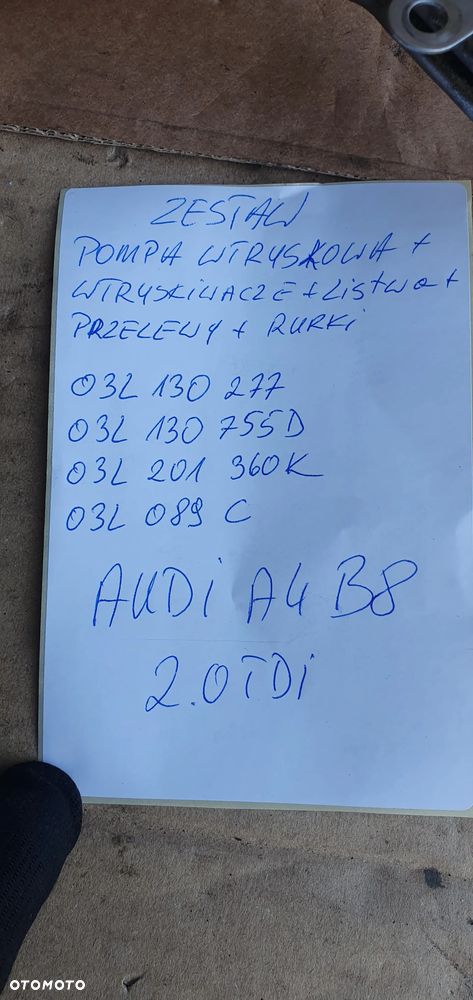 ZESTAW
POMPA WTRYSKOWA +
WTRYSKIWACZE + LiStWa +
PRZELEWY + RURKi
03L 130 277
03L 130 755D
03L 201 360K
03L 089 C
AUDi A4 B8
2.0TDi
OTOMOTO